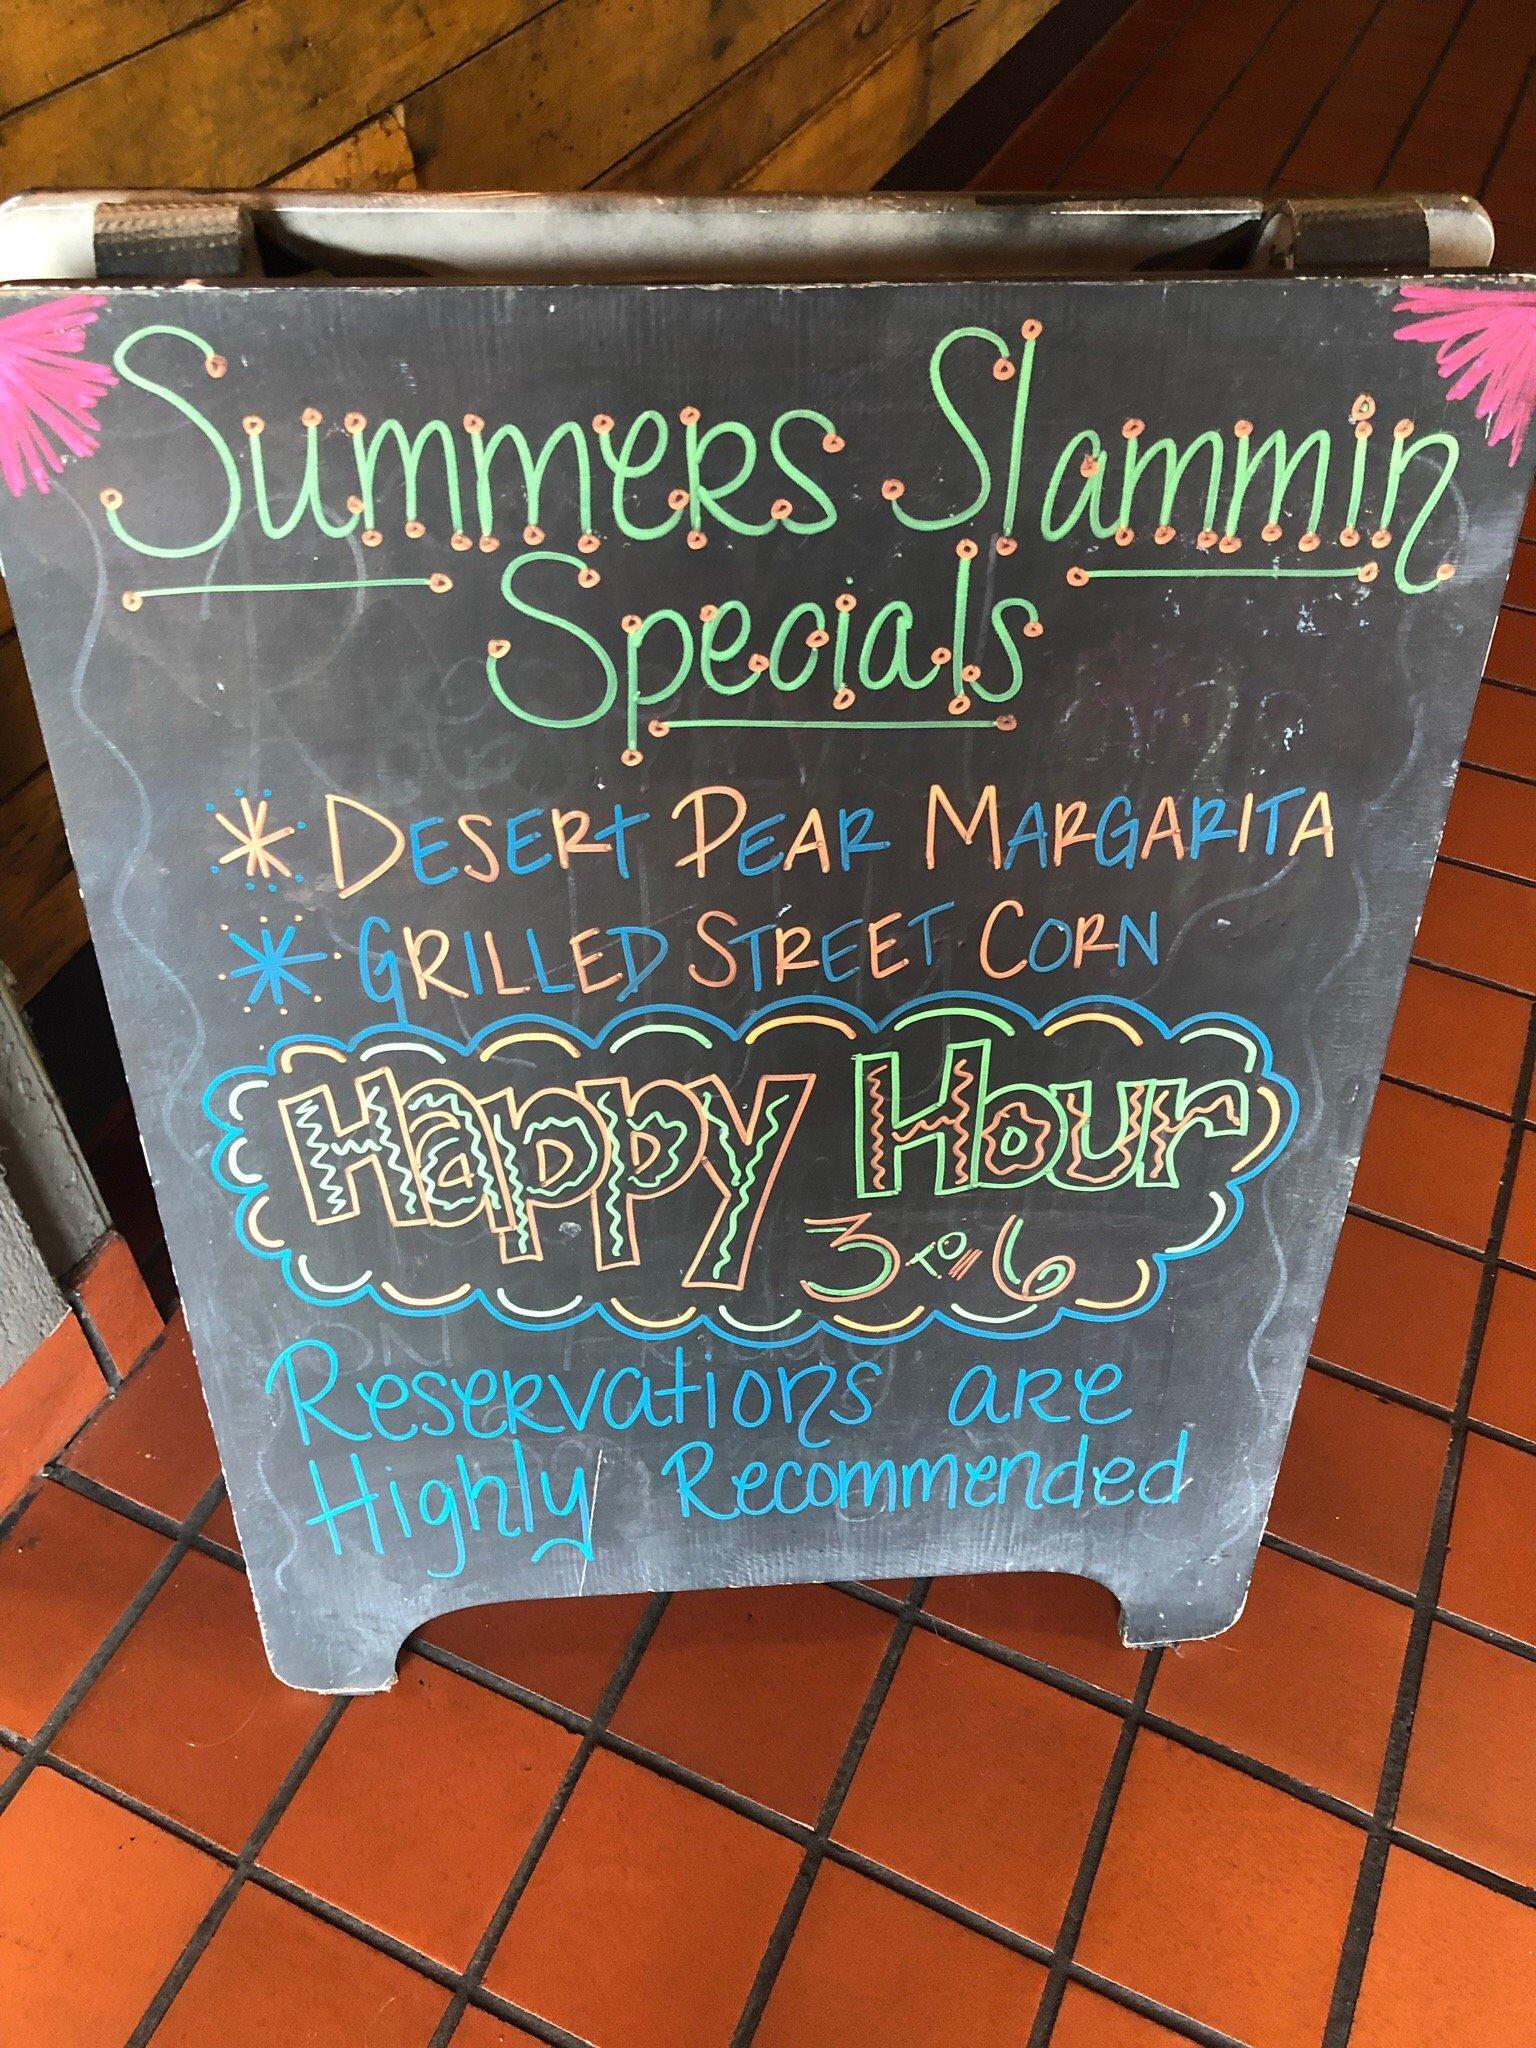 Summers Slammin
Specials
* DESERT PEAR MARGARITA
* GRILLED STREET CORN
Happy Hour
3 to 6
Reservations are
Highly Recommended